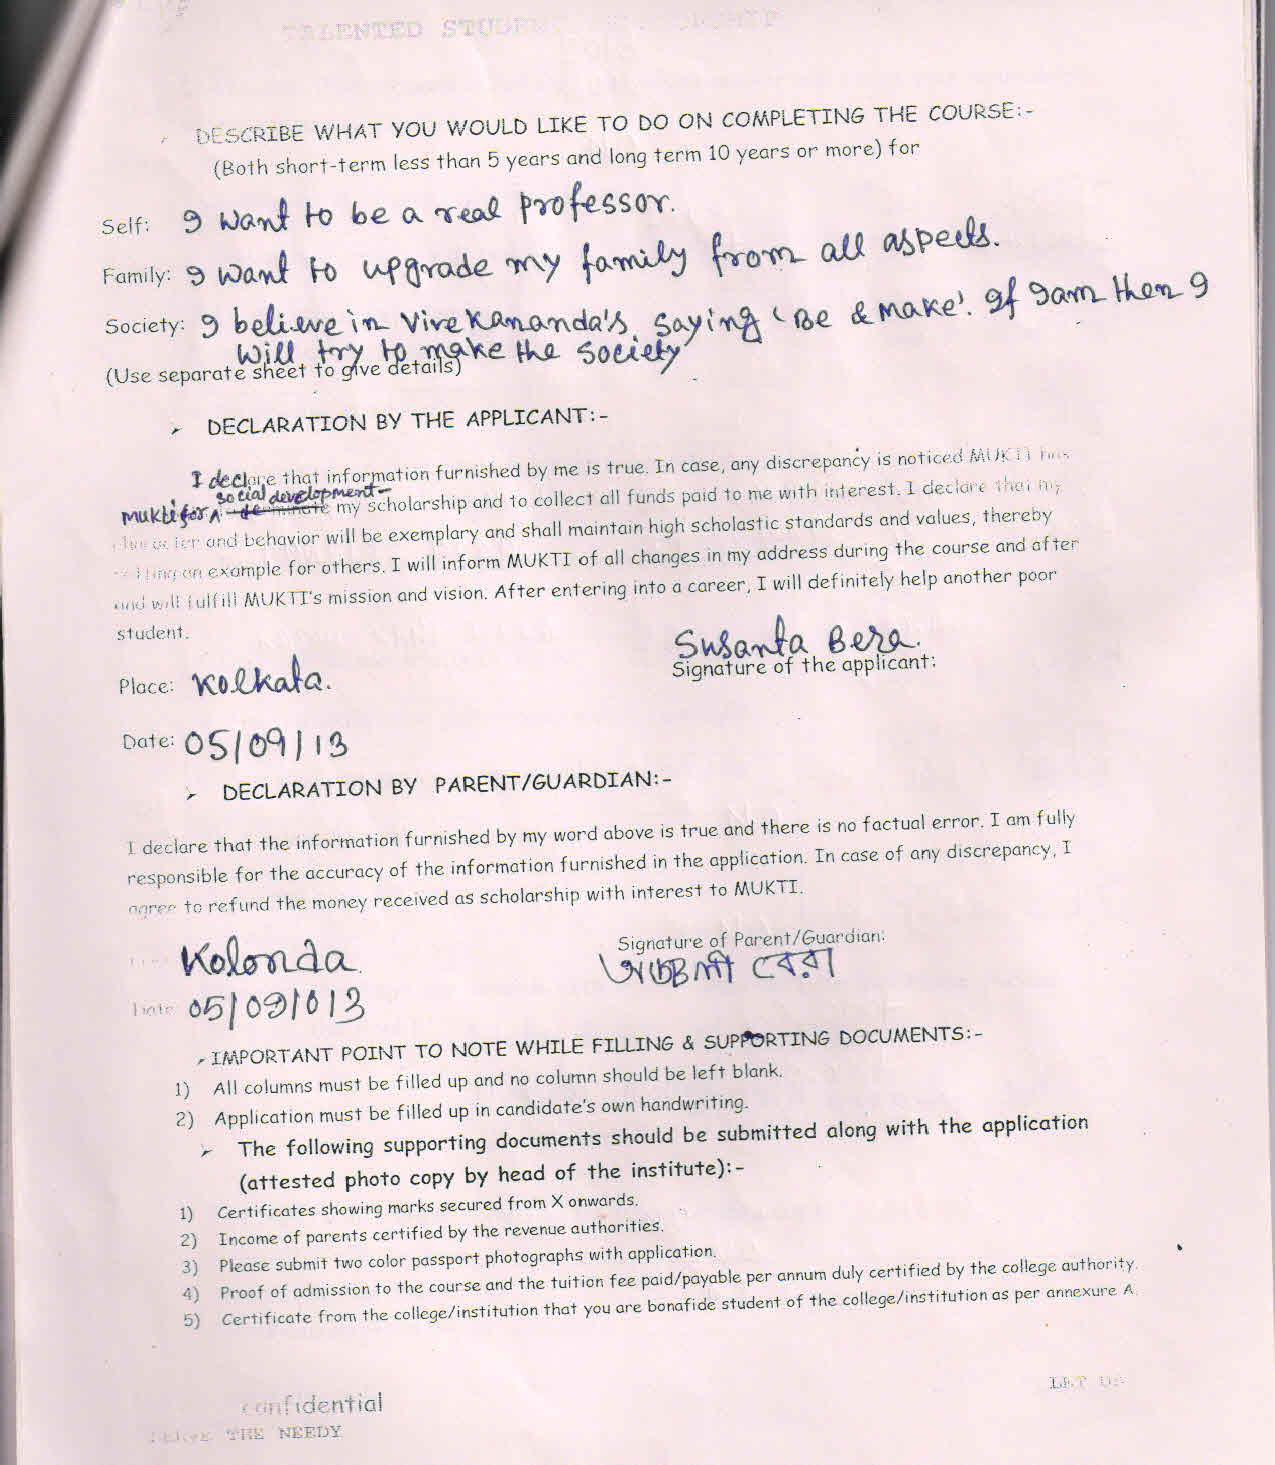 TALENTED STUDENT
DESCRIBE WHAT YOU WOULD LIKE TO DO ON COMPLETING THE COURSE:-
(Both short-term less than 5 years and long term 10 years or more) for
Self: I want to be a real professor.
Family: I want to upgrade my family from all aspects.
Society: I believe in Vivekananda's saying 'Be & Make'. If I am then I
will try to make the society
(Use separate sheet to give details)
➢ DECLARATION BY THE APPLICANT:-
I declare that information furnished by me is true. In case, any discrepancy is noticed MUKTI has
social development
Mukti for my scholarship and to collect all funds paid to me with interest. I declare that my
character and behavior will be exemplary and shall maintain high scholastic standards and values, thereby
setting an example for others. I will inform MUKTI of all changes in my address during the course and after
and will fulfill MUKTI's mission and vision. After entering into a career, I will definitely help another poor
student.
Susanta Bera.
Place: Kolkata.
Signature of the applicant:
Date: 05/09/13
➢ DECLARATION BY PARENT/GUARDIAN:-
I declare that the information furnished by my word above is true and there is no factual error. I am fully
responsible for the accuracy of the information furnished in the application. In case of any discrepancy, I
agree to refund the money received as scholarship with interest to MUKTI.
Signature of Parent/Guardian:
Kolonda
বেরা
Date 05/09/013
➢ IMPORTANT POINT TO NOTE WHILE FILLING & SUPPORTING DOCUMENTS:-
1) All columns must be filled up and no column should be left blank.
2) Application must be filled up in candidate's own handwriting.
➢ The following supporting documents should be submitted along with the application
(attested photo copy by head of the institute):-
1) Certificates showing marks secured from X onwards.
2) Income of parents certified by the revenue authorities.
3) Please submit two color passport photographs with application.
4) Proof of admission to the course and the tuition fee paid/payable per annum duly certified by the college authority.
5) Certificate from the college/institution that you are bonafide student of the college/institution as per annexure A.
LET US
confidential
SERVE THE NEEDY